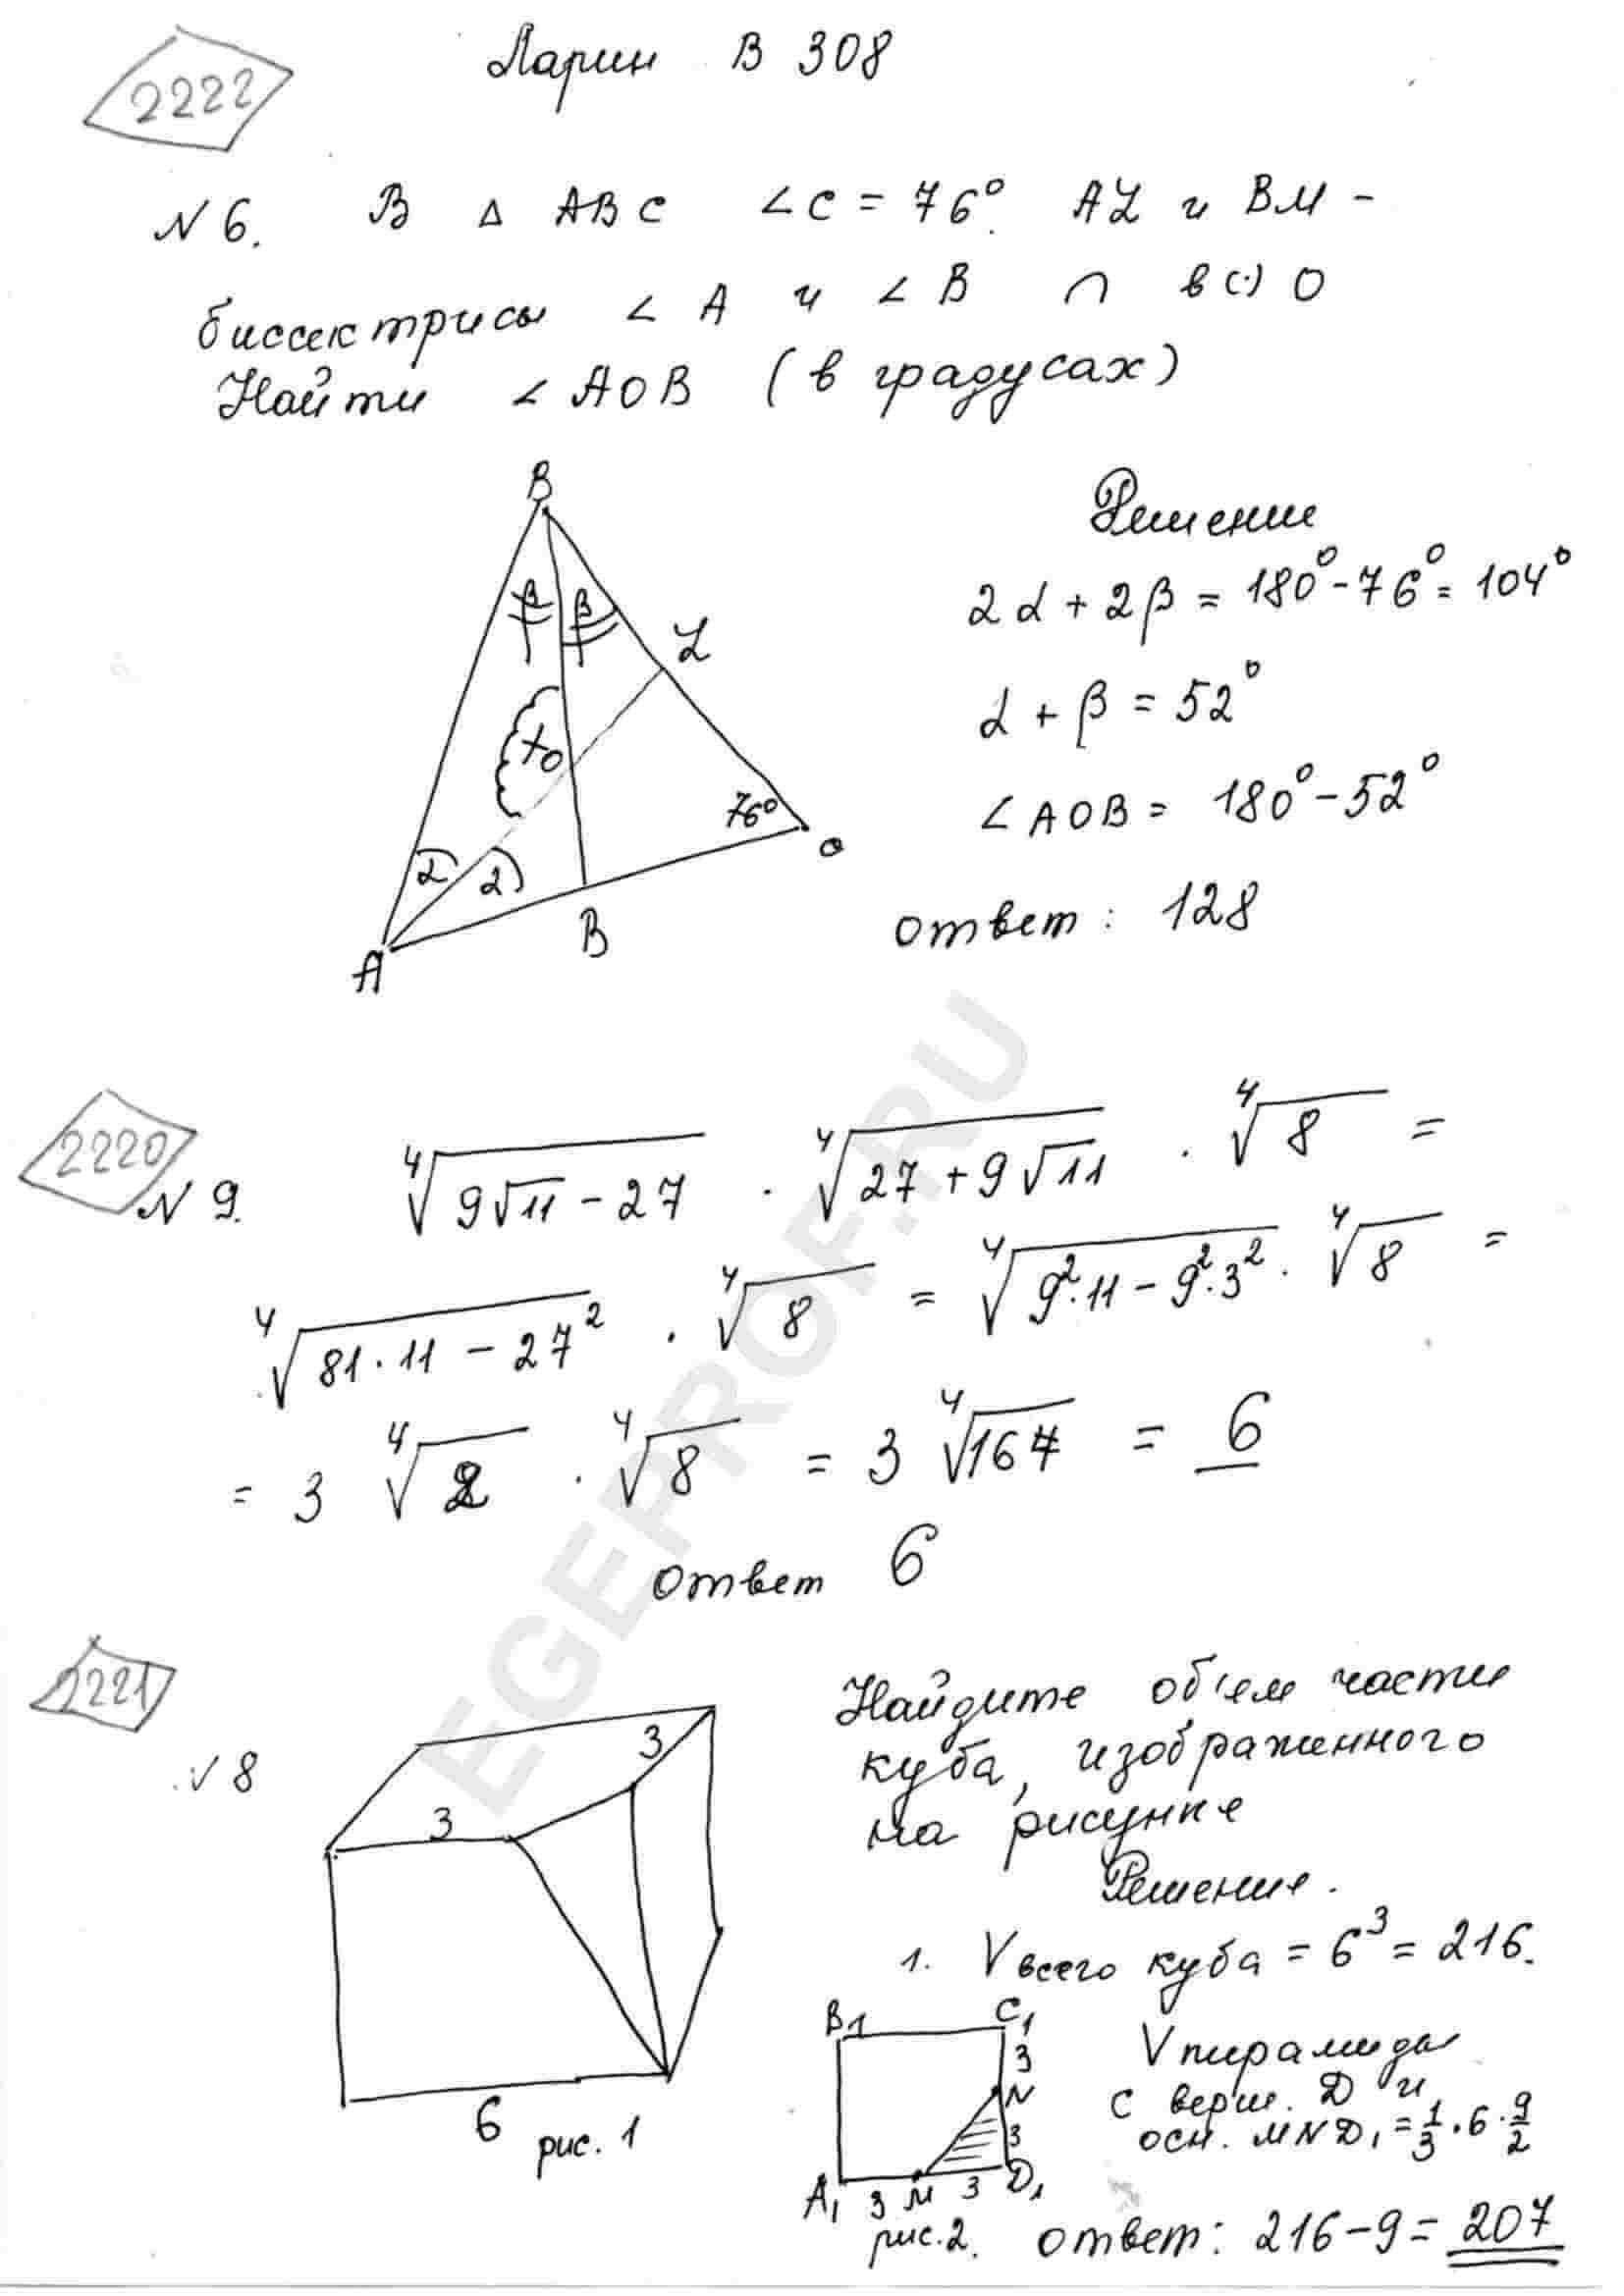 2222
Ларин В 308
№6. В △ ABC ∠C = 76°. AL и BM -
биссектрисы ∠ A и ∠ B ∩ в (·) O
Найти ∠ AOB (в градусах)
B
Решение
β β
2α + 2β = 180° - 76° = 104°
L
α + β = 52°
x O
76°
∠AOB = 180° - 52°
α α
B
A
ответ: 128
2220
№ 9. ⁴√(9√11 - 27) · ⁴√(27 + 9√11) · ⁴√8 =
⁴√(81·11 - 27²) · ⁴√8 = ⁴√(9²·11 - 9²·3²) · ⁴√8 =
= 3 ⁴√2 · ⁴√8 = 3 ⁴√16 = 6
ответ 6
2221
№ 8
3
3
6
рис. 1
Найдите объем части
куба, изображенного
на рисунке
Решение.
1. V всего куба = 6³ = 216.
B₁ C₁
3
N
3
A₁ 3 M 3 D₁
рис. 2.
V пирамиды
с верш. D и
осн. MND₁ = 1/3 · 6 · 9/2
ответ: 216 - 9 = 207
EGEPROF.RU